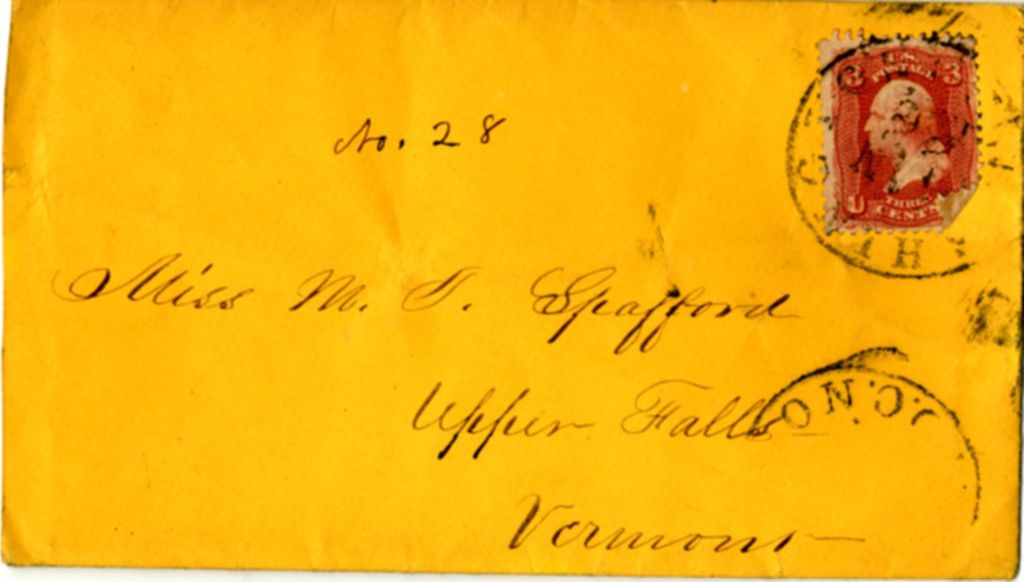 No. 28
U.S.
POSTAGE
3 3
U
THREE
CENTS
Miss M. J. Spafford
Upper Falls
Vermont